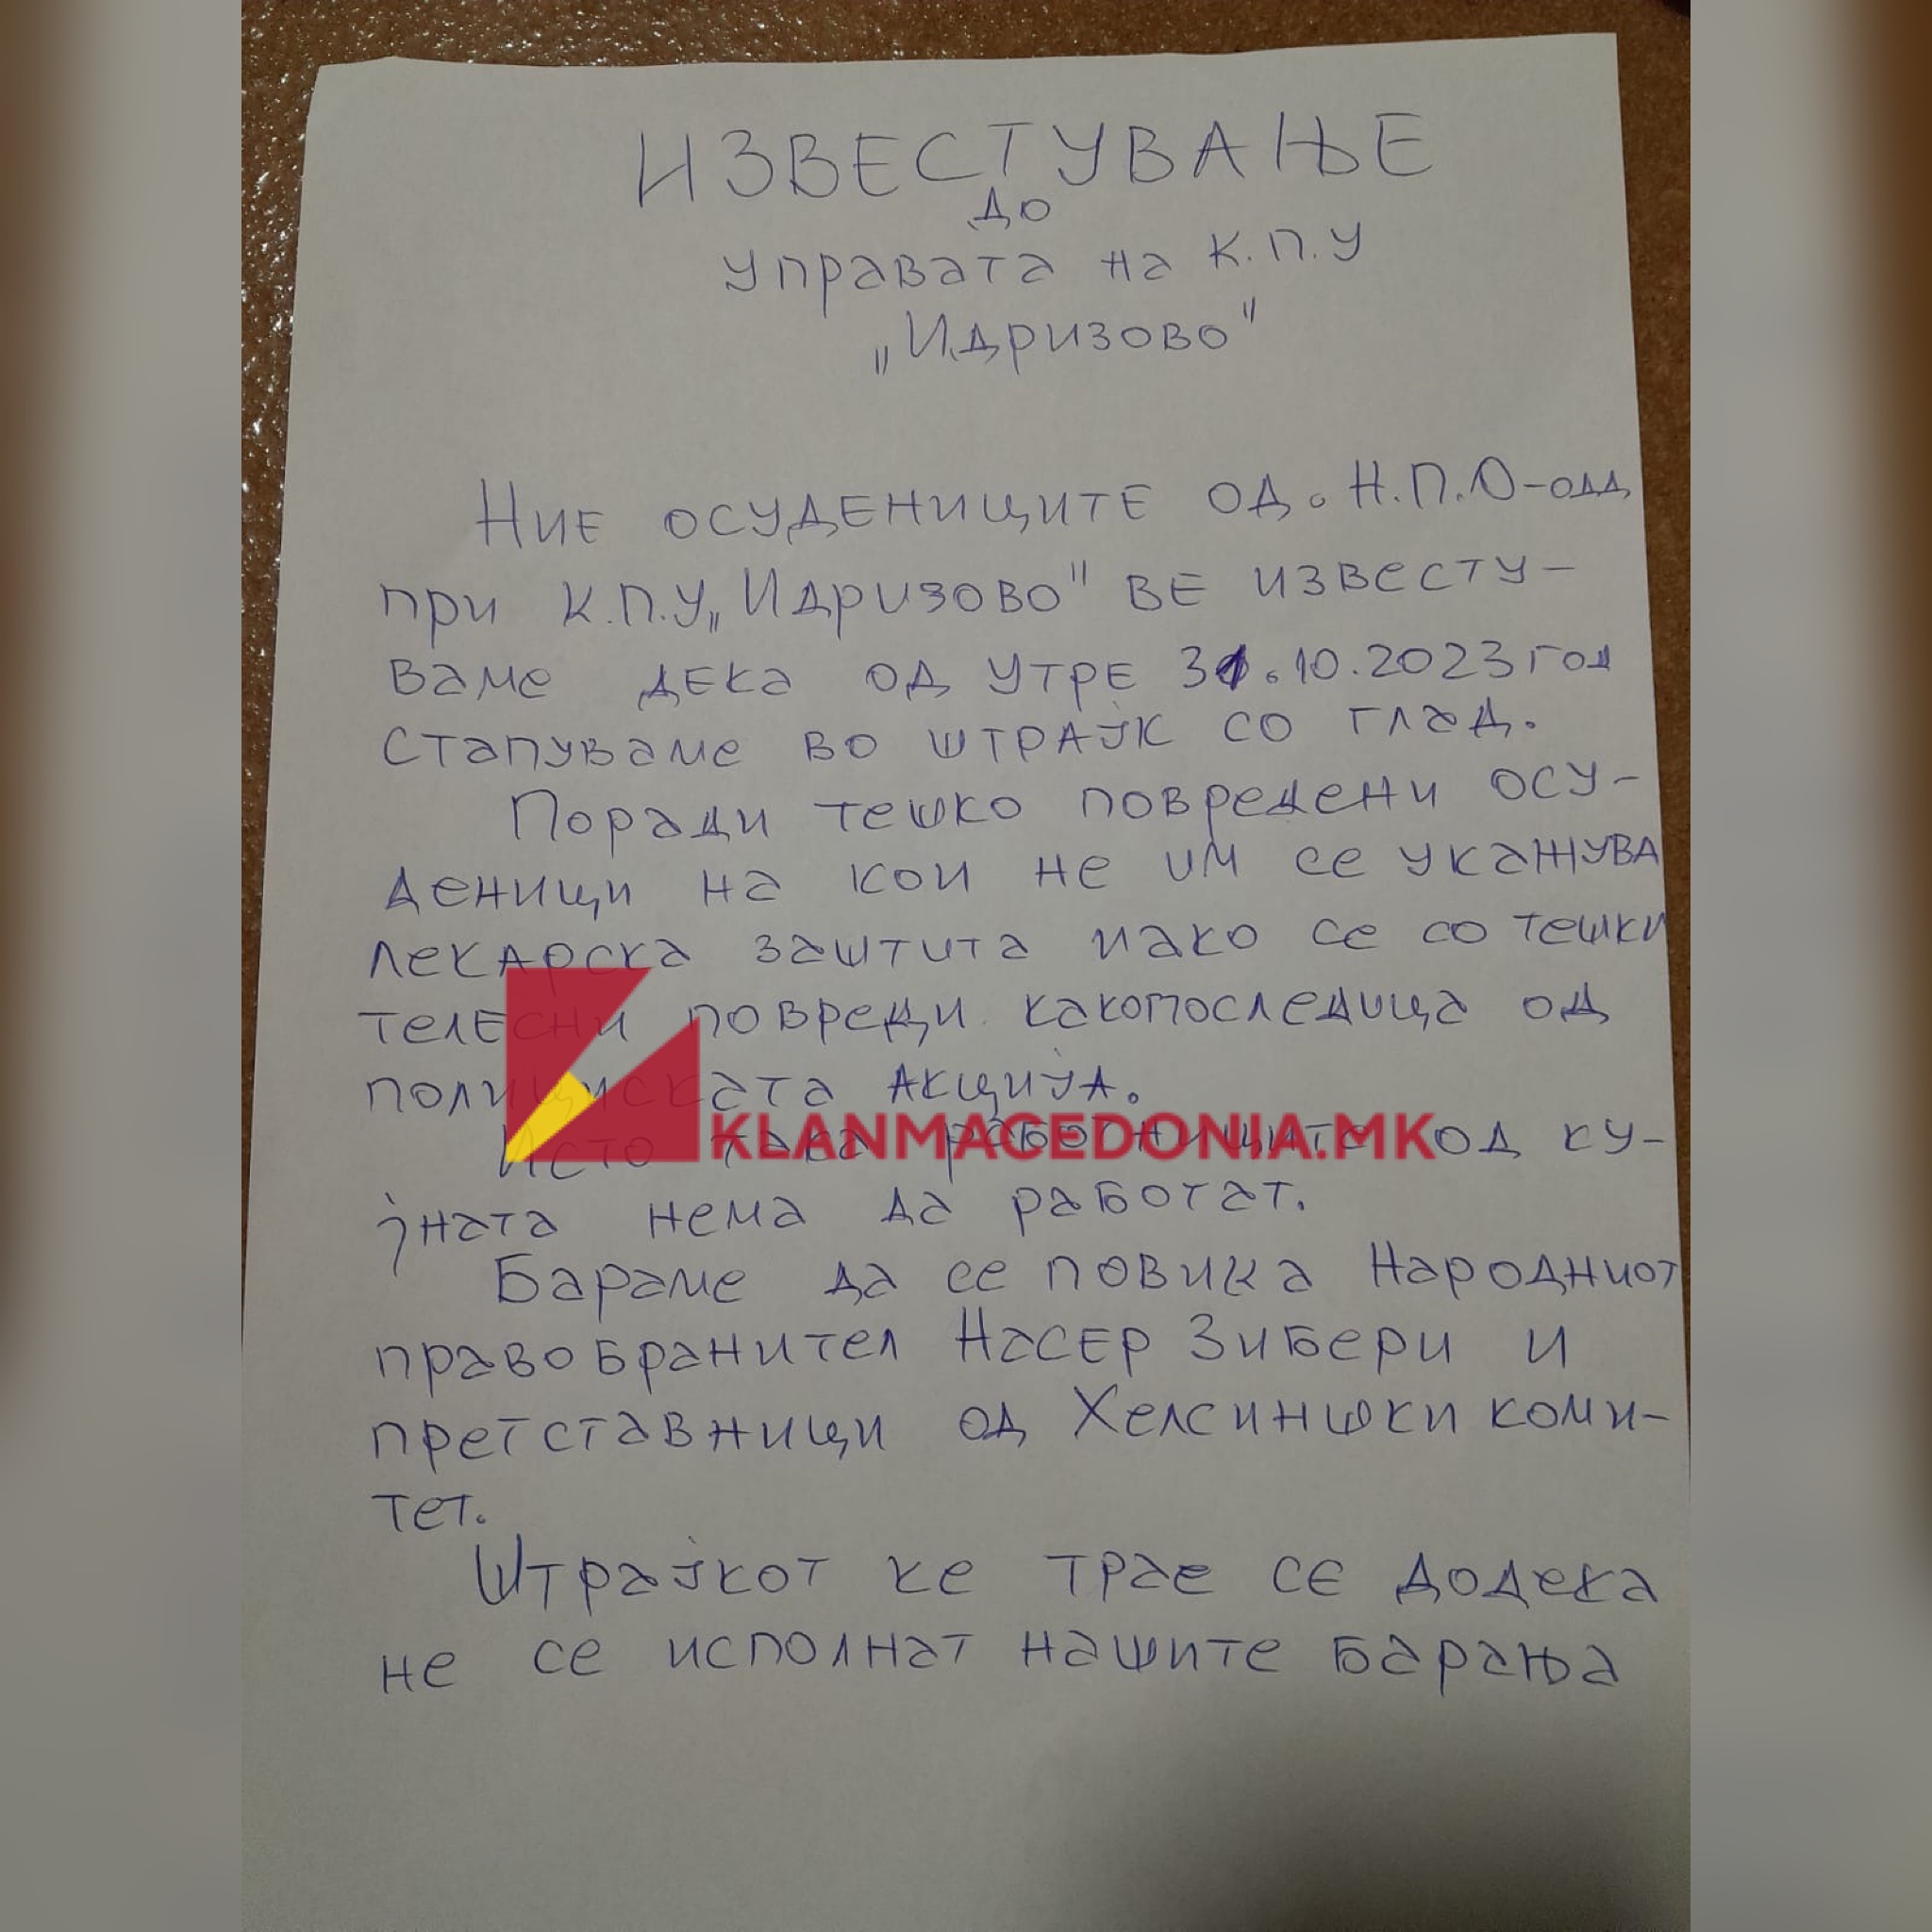 ИЗВЕСТУВАЊЕ
до
управата на К.П.У
„Идризово"
Ние осудениците од. Н.П.О-одд
при К.П.У„Идризово" ве известу-
ваме дека од утре 31.10.2023 год
стапуваме во штрајк со глад.
Поради тешко повредени осу-
деници на кои не им се укажува
лекарска заштита иако се со тешки
телесни повреди какопоследица од
полициската акција.
KLANMACEDONIA.MK
Исто така работниците од ку-
јната нема да работат.
Бараме да се повика Народниот
правобранител Насер Зибери и
претставници од Хелсиншки коми-
тет.
Штрајкот ке трае се додека
не се исполнат нашите барања